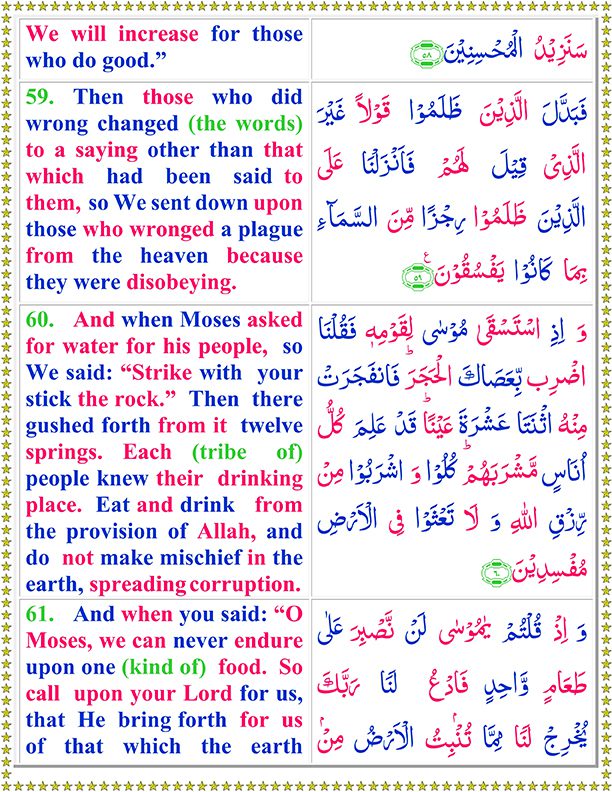 We will increase for those
who do good.”
سَنَزِيْدُ الْمُحْسِنِيْنَ ۝۵۸
59. Then those who did
wrong changed (the words)
to a saying other than that
which had been said to
them, so We sent down upon
those who wronged a plague
from the heaven because
they were disobeying.
فَبَدَّلَ الَّذِيْنَ ظَلَمُوْا قَوْلًا غَيْرَ
الَّذِىْ قِيْلَ لَهُمْ فَاَنْزَلْنَا عَلَى
الَّذِيْنَ ظَلَمُوْا رِجْزًا مِّنَ السَّمَآءِ
بِمَا كَانُوْا يَفْسُقُوْنَ ۝۵۹ ع
60. And when Moses asked
for water for his people, so
We said: “Strike with your
stick the rock.” Then there
gushed forth from it twelve
springs. Each (tribe of)
people knew their drinking
place. Eat and drink from
the provision of Allah, and
do not make mischief in the
earth, spreading corruption.
وَ اِذِ اسْتَسْقٰى مُوْسٰى لِقَوْمِهٖ فَقُلْنَا
اضْرِب بِّعَصَاكَ الْحَجَرَ ؕ فَانفَجَرَتْ
مِنْهُ اثْنَتَا عَشْرَةَ عَيْنًا ؕ قَدْ عَلِمَ كُلُّ
اُنَاسٍ مَّشْرَبَهُمْ ؕ كُلُوْا وَ اشْرَبُوْا مِنْ
رِّزْقِ اللّٰهِ وَ لَا تَعْثَوْا فِى الْاَرْضِ
مُفْسِدِيْنَ ۝۶۰
61. And when you said: “O
Moses, we can never endure
upon one (kind of) food. So
call upon your Lord for us,
that He bring forth for us
of that which the earth
وَ اِذْ قُلْتُمْ يٰمُوْسٰى لَنْ نَّصْبِرَ عَلٰى
طَعَامٍ وَّاحِدٍ فَادْعُ لَنَا رَبَّكَ
يُخْرِجْ لَنَا مِمَّا تُنْۢبِتُ الْاَرْضُ مِنْۢ